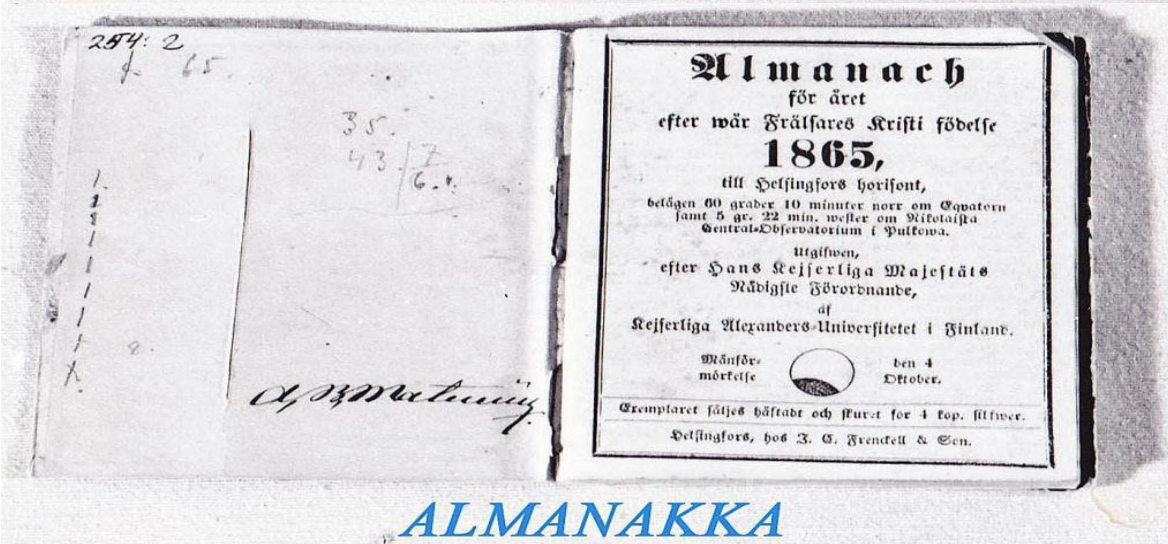 254: 2
65.
35.
43. 7
6.
Almanach
för året
efter wår Frälsares Kristi födelse
1865,
till Helsingfors horisont,
belägen 60 grader 10 minuter norr om Eqvatorn
samt 5 gr. 22 min. wester om Nikolaiska
Central-Observatorium i Pulkowa.
Utgifwen,
efter Hans Kejserliga Majestäts
Nådigste Förordnande,
af
Kejserliga Alexanders-Universitetet i Finland.
Månför- den 4
mörkelse Oktober.
Exemplaret säljes häftadt och skuret för 4 kop. silfwer.
Helsingfors, hos J. C. Frenckell & Son.
ALMANAKKA